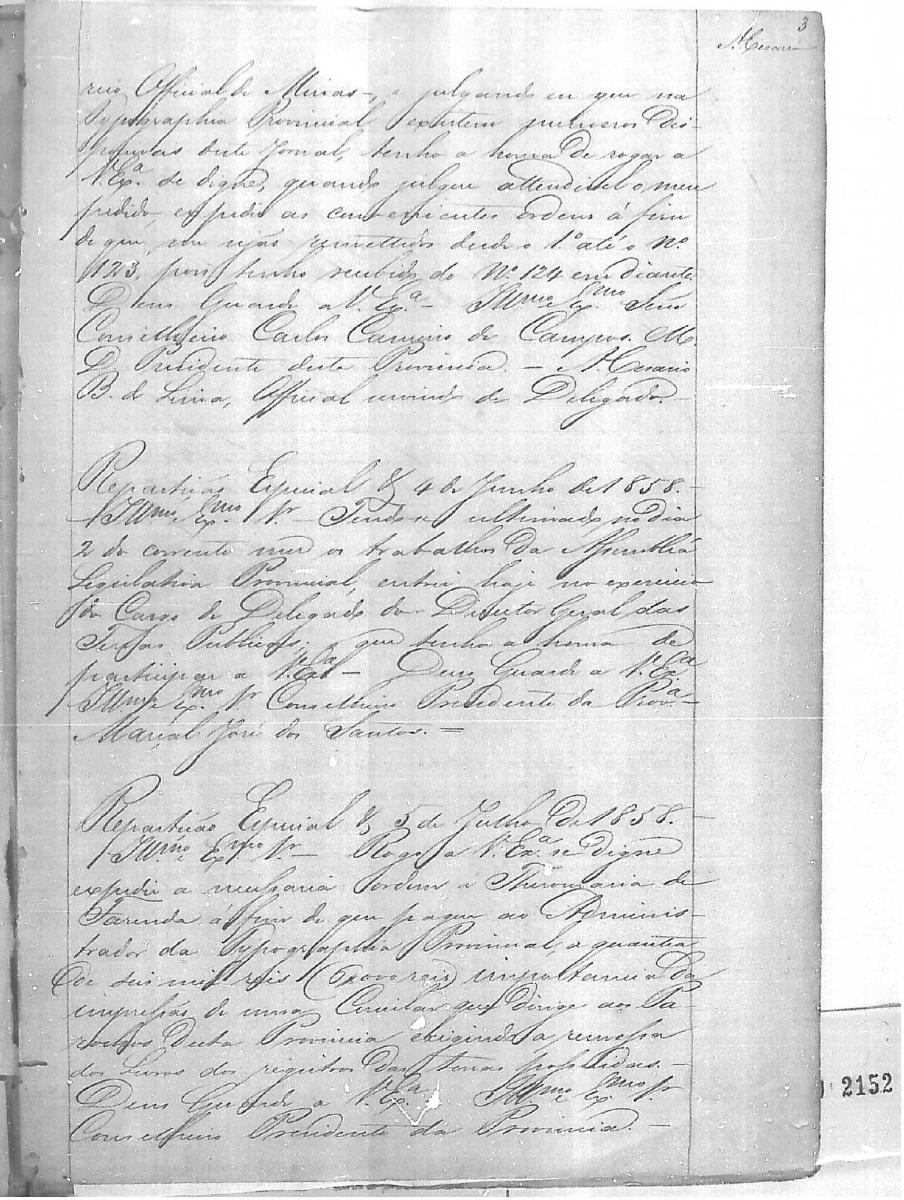 3
A. Cesario
reio Official de Minas, e julgando eu que na
Typographia Provincial existem numeros dis-
poniveis deste Jornal, tenho a honra de rogar a
V. Exª. se digne, quando julgue attendivel o meu
pedido, expedir as convenientes ordens á fim
de que me sejão remettidos desde o 1º. até o Nº
123, pois tenho recebido do Nº. 124 em diante.
Deus Guarde a V. Exª. Illmo. e Exmo. Senr.
Conselheiro Carlos Carneiro de Campos. M.
D. Presidente desta Provincia. — A. Cesario
B. de Lima, Official servindo de Delegado. —
Repartição Especial & 4 de Junho de 1858. —
Illmo. e Exmo. Sr. — Tendo-se ultimado no dia
2 do corrente mez os trabalhos da Assembléa
Legislativa Provincial, entrei hoje no exercicio
do Cargo de Delegado do Director Geral das
Terras Publicas; que tenho a honra de
participar a V. Exª. — Deus Guarde a V. Exª.
Illmo. e Exmo. Sr. Conselheiro Presidente da Provª. —
Marçal José dos Santos. —
Repartição Especial & 5 de Julho de 1858. —
Illmo. e Exmo. Sr. — Rogo a V. Exª. se digne
expedir a necessaria ordem á Thesouraria de
Fazenda á fim de que pague ao Adminis-
trador da Typographia Provincial, a quantia
de seis mil reis (6000 reis) importancia da
impressão de uma Circular que dirige aos Pa
rochos desta Provincia exigindo a remessa
dos Livros dos registros das terras possuidas. —
Deus Guarde a V. Exª. Illmo. e Exmo. Sr.
Conselheiro Presidente da Provincia. —
2152